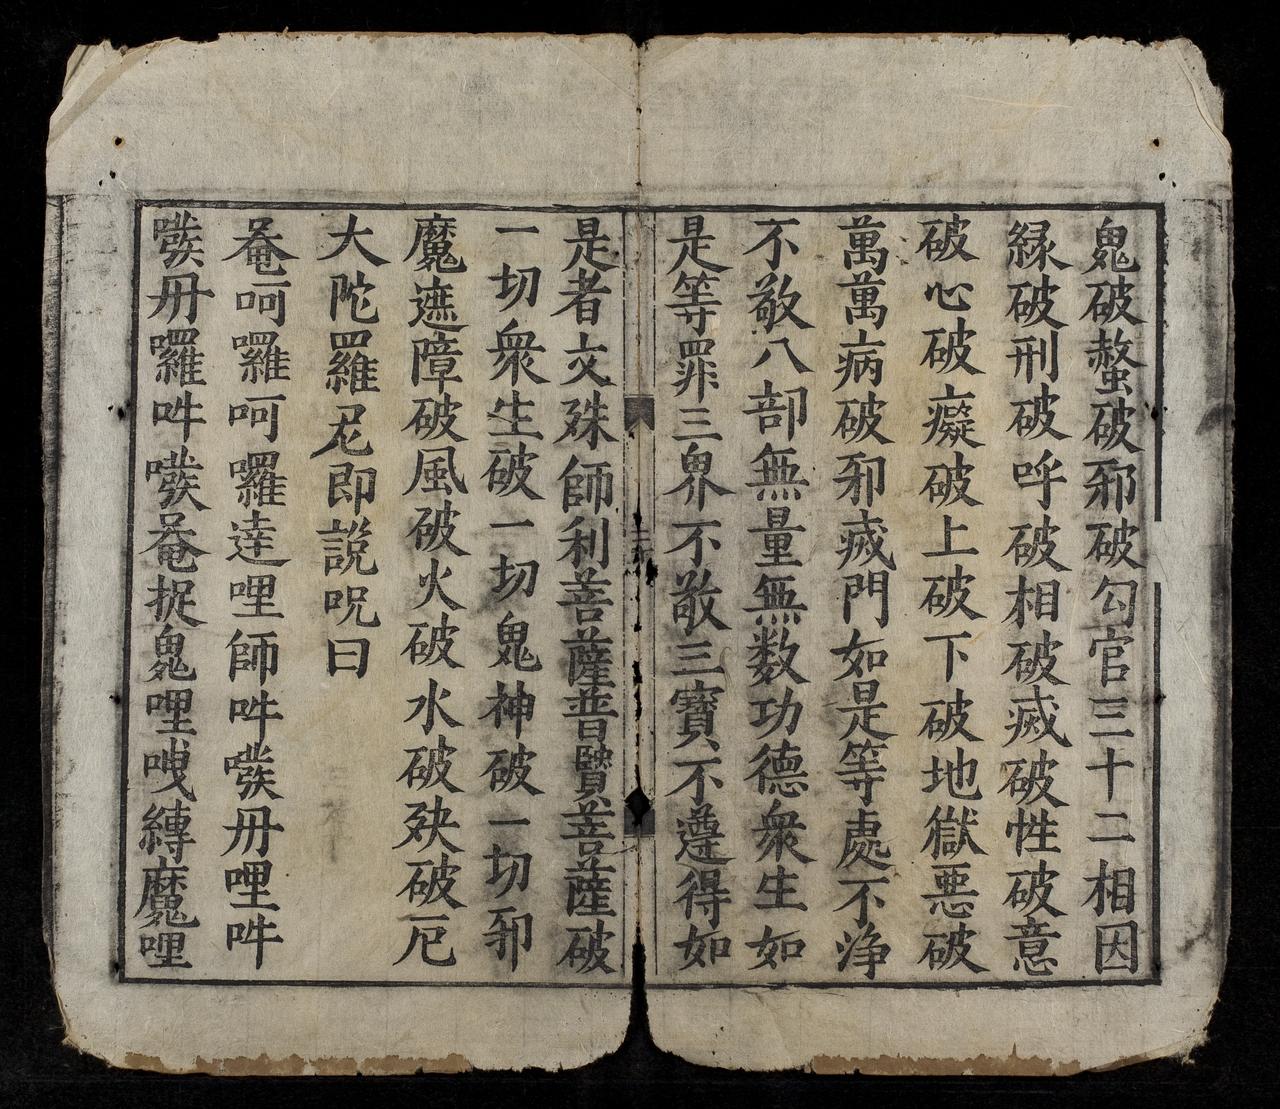 鬼破螯破邪破勾官三十二相因
緑破刑破呼破相破滅破性破意
破心破癡破上破下破地獄悪破
萬萬病破邪滅門如是等處不浄
不敬八部無量無数功德衆生如
是等罪三界不敬三寳不遵得如
是者文殊師利菩薩普賢菩薩破
一切衆生破一切鬼神破一切邪
魔遮障破風破火破水破殃破厄
大陀羅尼即説呪曰
唵呵囉呵囉達哩師吽㗶冊哩吽
㗶冊囉吽㗶唵捉鬼哩㗭縛魔哩